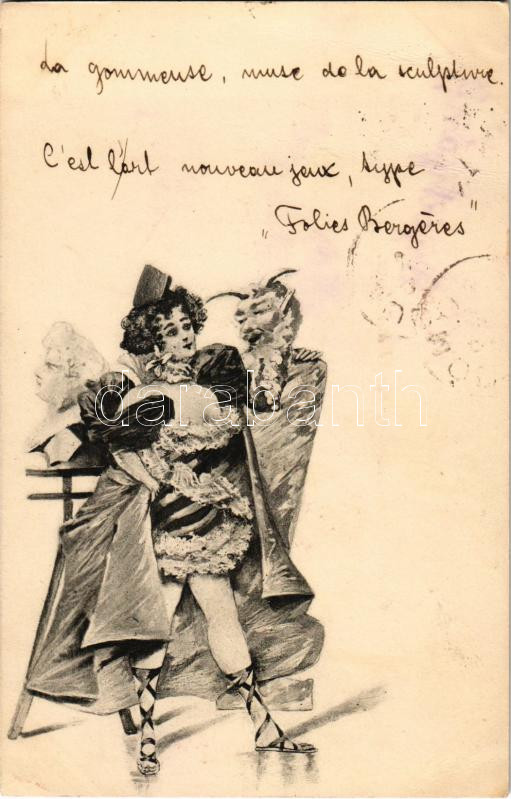 La gommeuse, muse de la sculpture.
C'est l'art nouveau jeux, type
„Folies Bergères"
darabanth